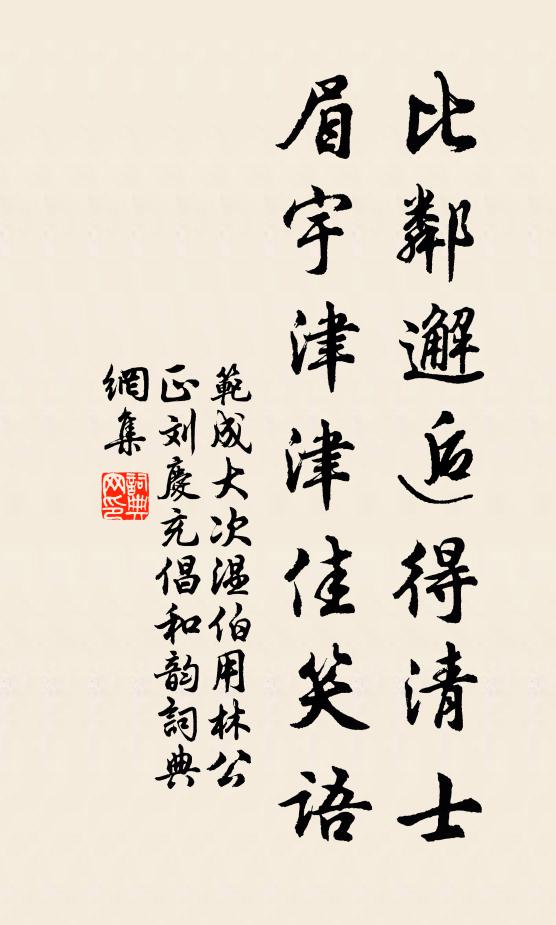 比鄰邂逅得清士
眉宇津津佳笑語
範成大次溫伯用林公
正刘慶充倡和韵詞典
網集
詞典
网印